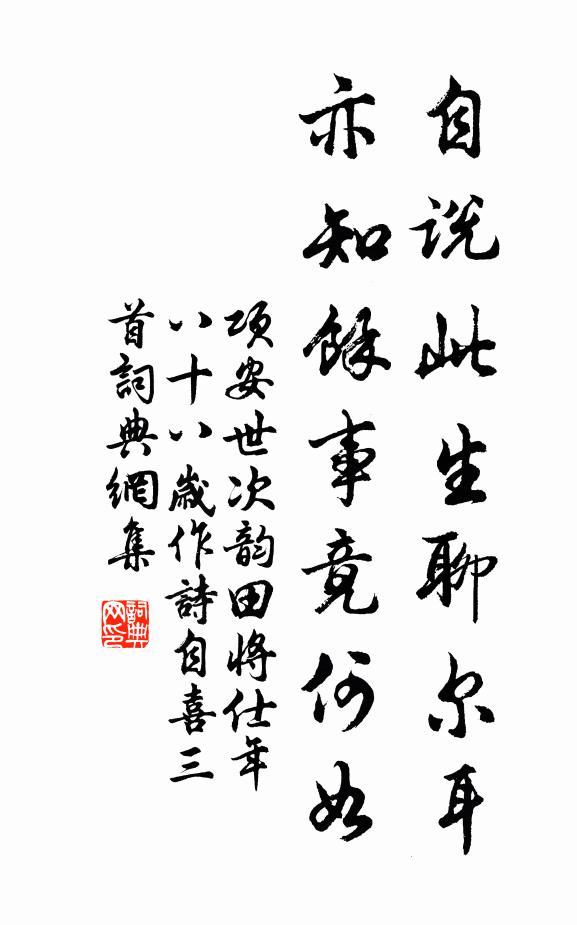 自说此生聊尔耳
亦知餘事竟何如
項安世次韵田將仕年
八十八歲作詩自喜三
首詞典網集
詞典
网印